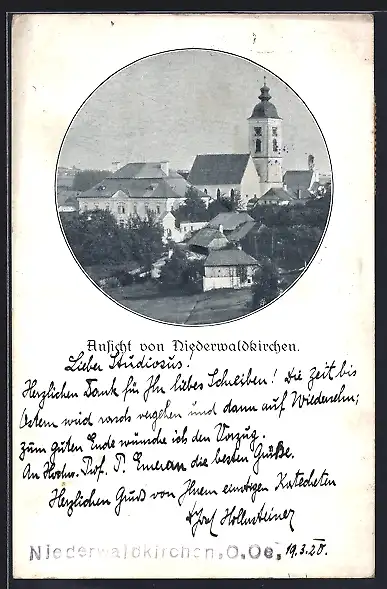 Ansicht von Niederwaldkirchen.
Lieber Studiosus!
Herzlichen Dank für Ihr liebes Schreiben! Die Zeit bis
Ostern wird rasch vergehen und dann auf Wiedersehn;
zum guten Ende wünsche ich den Vorzug.
An Hochw. Prof. P. Emeran die besten Grüße.
Herzlichen Gruß von Ihrem einstigen Katecheten
Josef Hollnsteiner
Niederwaldkirchen, O. Oe., 19.3.20.